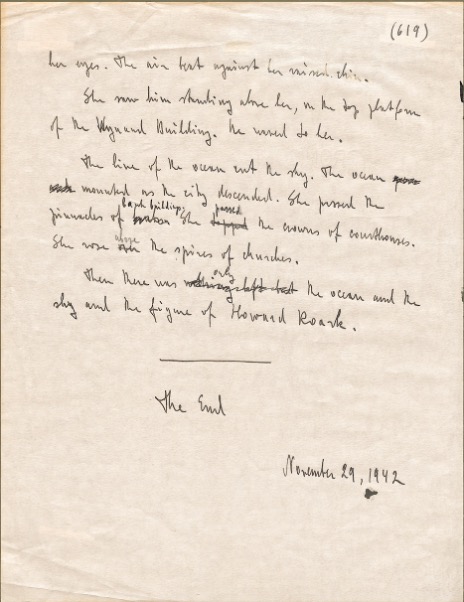 (619)
her eyes. The air beat against her raised chin.
She saw him standing above her, on the top platform
of the Wynand Building. He waved to her.
The line of the ocean cut the sky. The ocean
mounted as the city descended. She passed the
bank buildings. passed
pinnacles of She the crowns of courthouses.
above
She rose over the spires of churches.
only
Then there was nothing left but the ocean and the
sky and the figure of Howard Roark.
The End
November 29, 1942